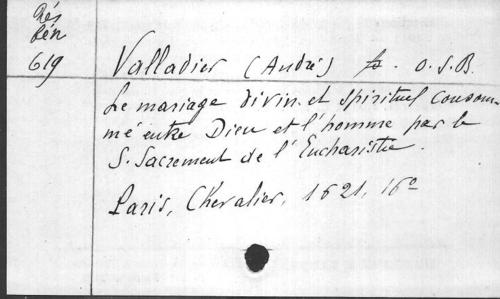 Rés
Rén
619
Valladier (André) fr. O.S.B.
Le mariage divin et spirituel consom-
mé entre Dieu et l'homme par le
S. Sacrement de l'Eucharistie.
Paris, Chevalier, 1621, 16°